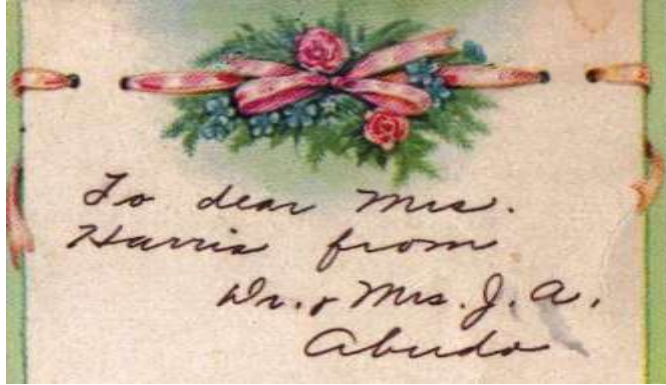 To dear Mrs.
Harris from
Dr. & Mrs. J. A.
Abudo